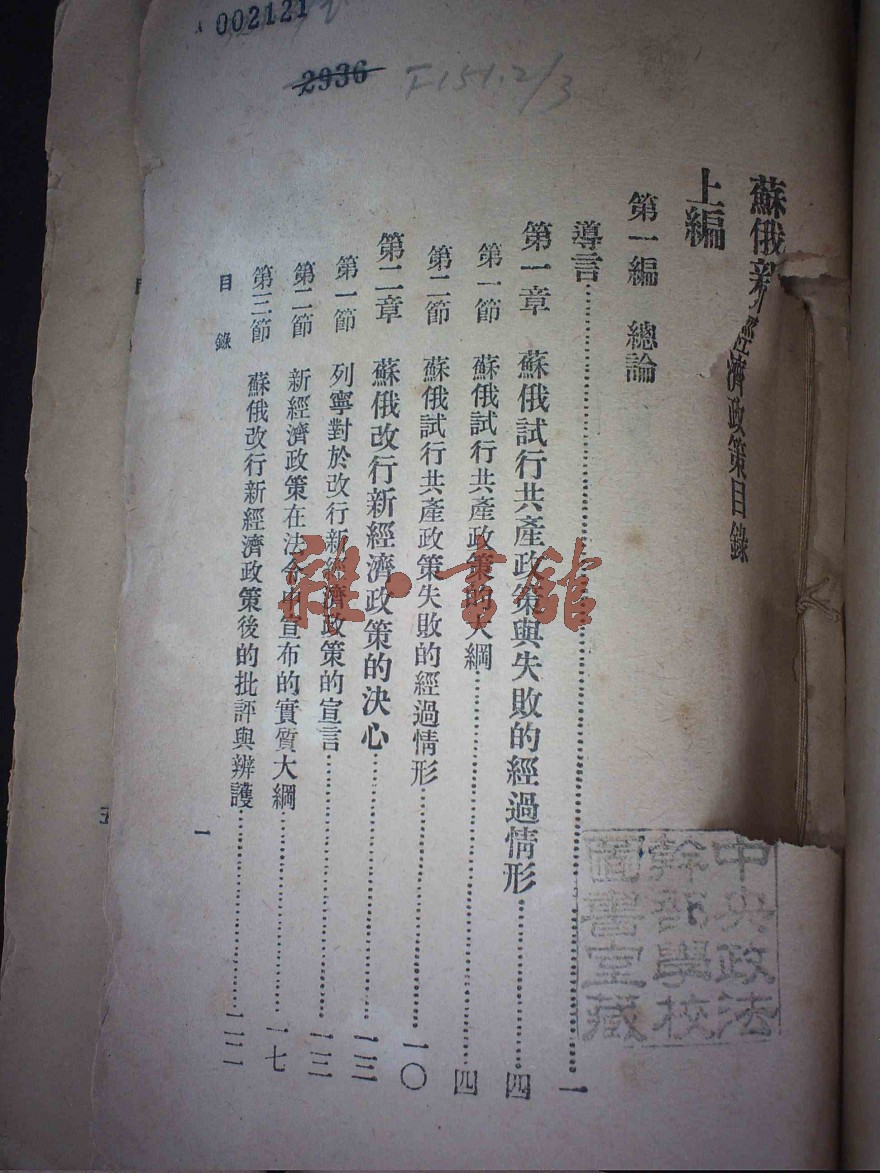 002121
2936
F151.2/3
蘇俄新經濟政策目錄
上編
第一編 總論
導言……一
第一章 蘇俄試行共產政策與失敗的經過情形……四
第一節 蘇俄試行共產政策的大綱……四
第二節 蘇俄試行共產政策失敗的經過情形……一〇
第二章 蘇俄改行新經濟政策的決心……一三
第一節 列寧對於改行新經濟政策的宣言……一三
第二節 新經濟政策在法令中宣布的實質大綱……一七
第三節 蘇俄改行新經濟政策後的批評與辨護……二二
目錄
一
中央政法
幹部學校
圖書室藏
雜·書館